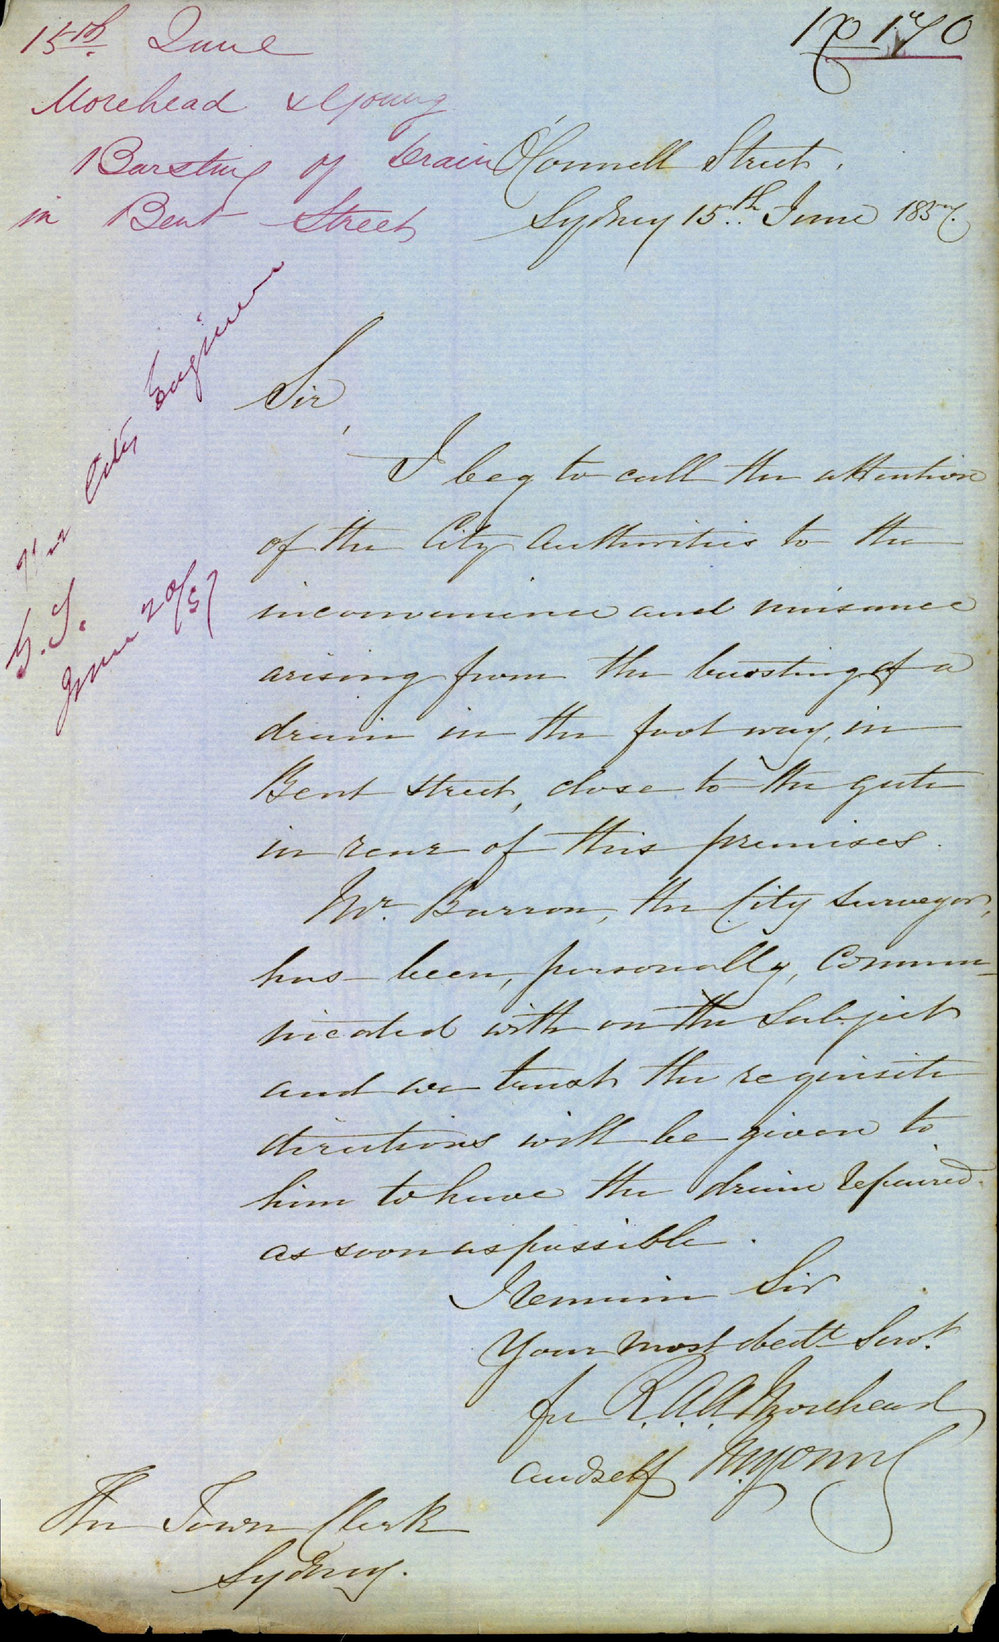 15th June
Morehead & Young
Bursting of drain
in Bent Street
O'Connell Street.
Sydney 15th June 1857.
City Engineer
June 20/57
Sir,
I beg to call the attention
of the City Authorities to the
inconvenience and nuisance
arising from the bursting of a
drain in the foot way, in
Bent Street, close to the gate
in rear of this premises.
Mr. Barron, the City Surveyor,
has been, personally, commu-
nicated with on the Subject
and we trust the requisite
directions will be given to
him to have the drain repaired
as soon as possible.
I remain Sir
Your most obedt Servt.
for R. A. A. Morehead
and self M. Young
The Town Clerk
Sydney.